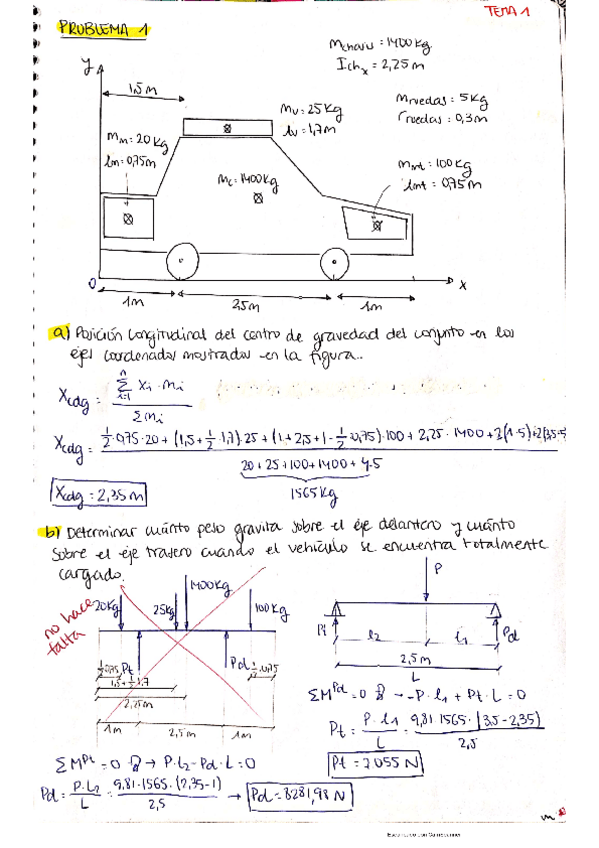 TEMA 1
PROBLEMA 1
mchasis = 1400 kg
Ichx = 2,25 m
y
1,5 m
mruedas = 5 kg
rruedas = 0,3 m
mv = 25 kg
lv = 1,7 m
mm = 20 kg
lm = 0,75 m
mc = 1400 kg
mmt = 100 kg
lmt = 0,75 m
0
x
1m
2,5 m
1m
a) Posición longitudinal del centro de gravedad del conjunto en los
ejes coordenados mostrados en la figura..
Xcdg = n Σ i=1 xi · mi / Σ mi
Xcdg = 1/2 · 0,75 · 20 + (1,5 + 1/2 · 1,7) · 25 + (1 + 2,5 + 1 - 1/2 · 0,75) · 100 + 2,25 · 1400 + 2(1·5) + 2(3,5·5)
20 + 25 + 100 + 1400 + 4·5
1565 kg
Xcdg = 2,35 m
b) Determinar cuánto peso gravita sobre el eje delantero y cuánto
sobre el eje trasero cuando el vehículo se encuentra totalmente
cargado.
no hace
falta
20kg
25kg
1400 kg
100 kg
Pt
Pd
1/2 0,75
1/2 0,75
1,5 + 1/2 1,7
2,25m
1m
2,5 m
1m
P
Pt
l2
l1
Pd
2,5 m
L
ΣM Pd = 0 → -P · l1 + Pt · L = 0
Pt = P · l1 / L = 9,81 · 1565 · (3,5 - 2,35) / 2,5
Pt = 7055 N
ΣM Pt = 0 → P · l2 - Pd · L = 0
Pd = P · l2 / L = 9,81 · 1565 · (2,35 - 1) / 2,5 → Pd = 8281,98 N